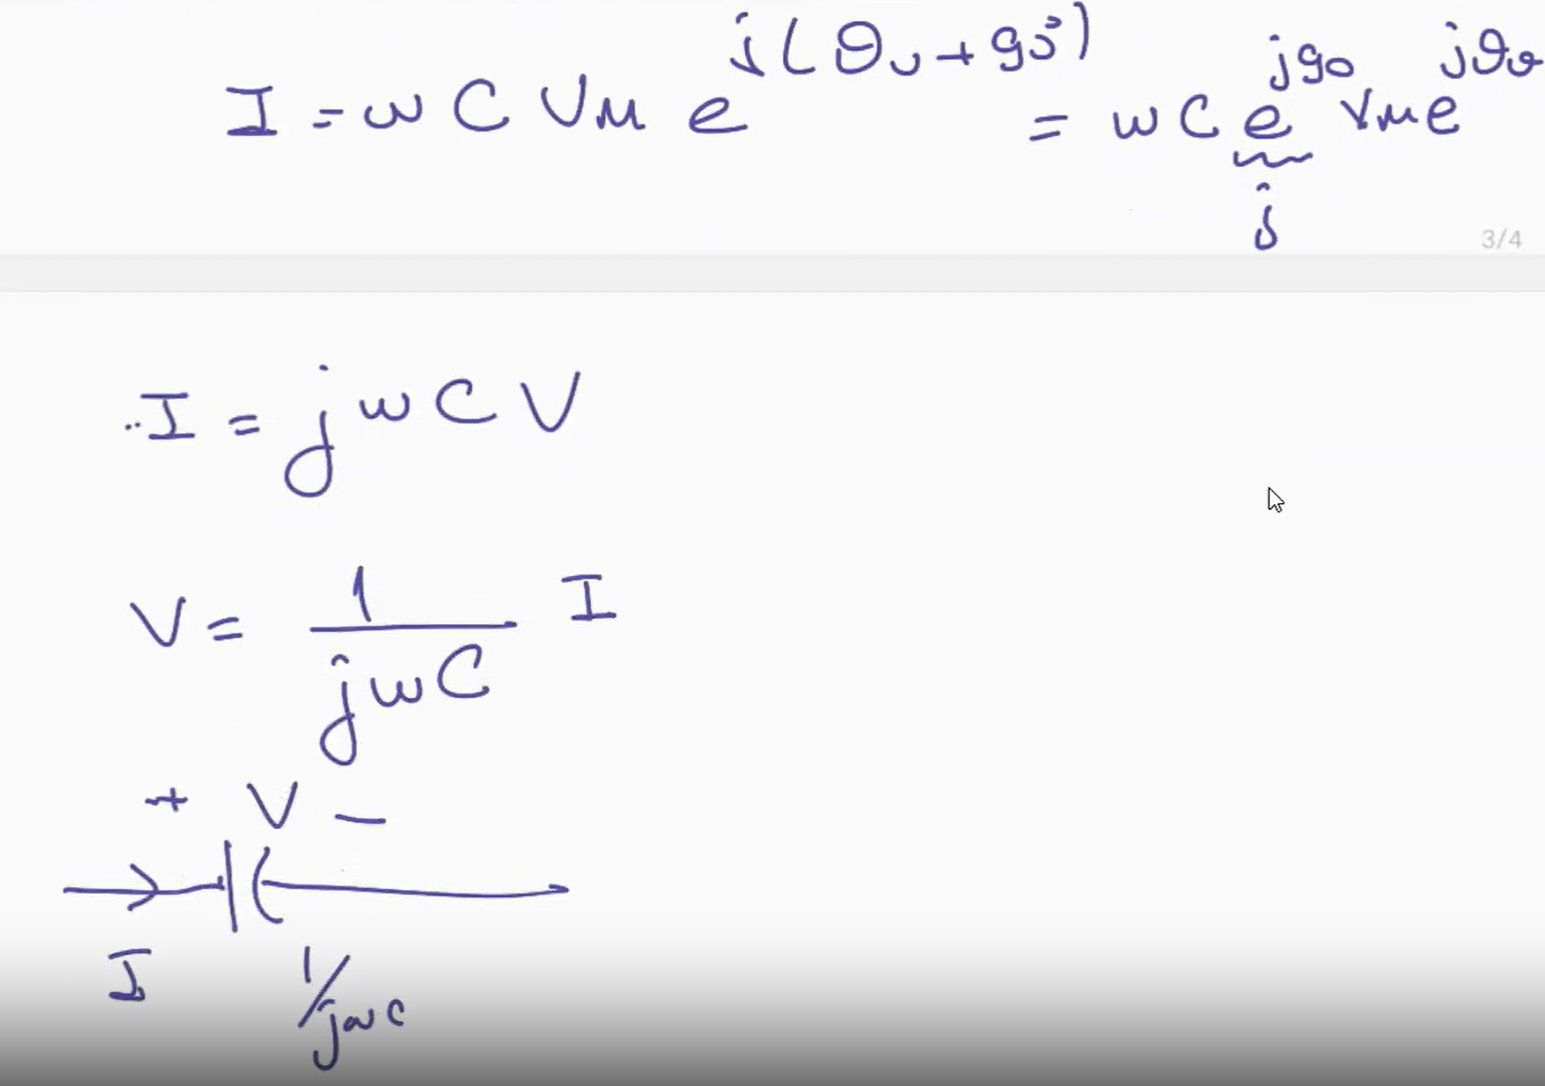 I = ωCVm e^{j(θv+90°)} = ωC e^{j90} Vm e^{jθv}
j
3/4
∴ I = jωCV
V = \frac{1}{jωC} I
+ V −
I 1/jωc